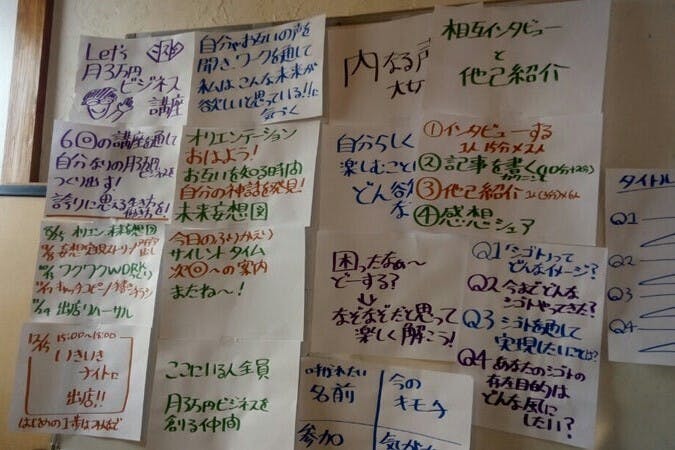 Let's
月3万円
ビジネス
講座
自分やお互いの声を
聞きワークを通して
私はこんな未来が
欲しいと思っている!!に
気づく
内なる
大
相互インタビュー
と
他己紹介
6回の講座を通して
自分なりの月3万円ビジネスを
つくり出す!
誇りに思える生き方
働き方を!
オリエンテーション
おはよう!
お互いを知る時間
自分の神話を発見!
未来妄想図
自分らしく
楽しむこと
どん欲
な
①インタビューする
1人15分×2人
②記事を書く
③他己紹介
④感想シェア
タイトル
Q1
Q2
Q3
Q4
オリエン 未来妄想図
妄想実現ストーリー
ワクワクWORK
出店リハーサル
今日のふりかえり
サイレントタイム
次回への案内
またね〜!
困ったなぁ〜
どーする?
なぞなぞだと思って
楽しく解こう!
Q1 シゴトって
どんなイメージ?
Q2 今までどんな
シゴトやってきた?
Q3 シゴトを通して
実現したいことは?
Q4 あなたのシゴトの
存在目的は
どんな風に
したい?
15:00〜18:00
いきいき
ナイトに
出店!!
はじめの1歩は
ここにいる人全員
月3万円ビジネスを
創る仲間
呼ばれたい
名前
今の
キモチ
参加
気が